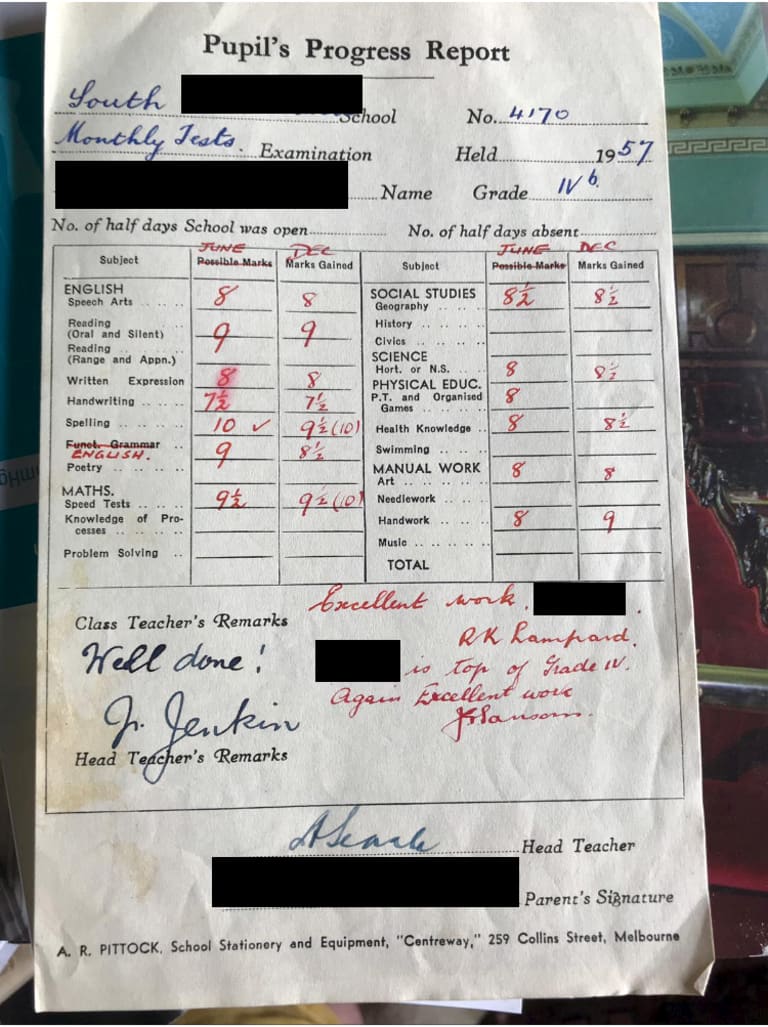 Pupil's Progress Report
South School No. 4170
Monthly Tests. Examination Held 1957
Name Grade IV b.
No. of half days School was open No. of half days absent
JUNE DEC JUNE DEC
Subject Possible Marks Marks Gained Subject Possible Marks Marks Gained
ENGLISH SOCIAL STUDIES
Speech Arts 8 8 Geography 8½ 8½
Reading (Oral and Silent) 9 9 History
Reading (Range and Appn.) Civics
SCIENCE
Written Expression 8 8 Hort. or N.S. 8 8½
PHYSICAL EDUC.
Handwriting 7½ 7½ P.T. and Organised Games 8
Spelling 10 ✓ 9½ (10) Health Knowledge 8 8½
Funct. Grammar
ENGLISH. 9 8½ Swimming
Poetry
MANUAL WORK
Art 8 8
MATHS.
Speed Tests 9½ 9½ (10) Needlework
Knowledge of Processes Handwork 8 9
Problem Solving Music
TOTAL
Excellent work,
Class Teacher's Remarks
RK Lampard.
Well done!
is top of Grade IV.
Again Excellent work
J. Jenkin
Head Teacher's Remarks
Head Teacher
Parent's Signature
A. R. PITTOCK, School Stationery and Equipment, "Centreway," 259 Collins Street, Melbourne